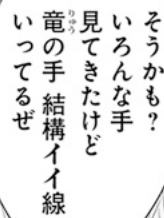 そうかも？
いろんな手
見てきたけど
竜の手 結構イイ線
いってるぜ